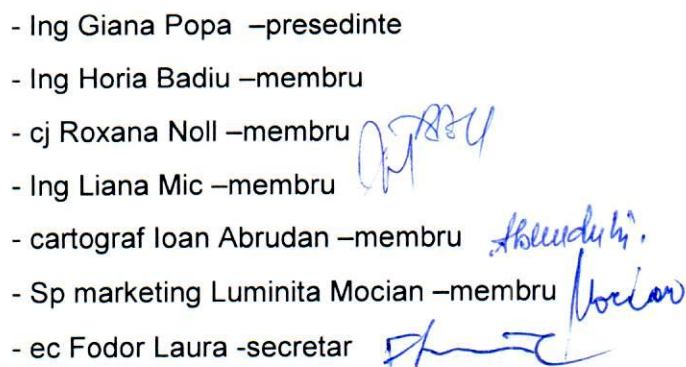 - Ing Giana Popa –presedinte
- Ing Horia Badiu –membru
- cj Roxana Noll –membru
- Ing Liana Mic –membru
- cartograf Ioan Abrudan –membru
- Sp marketing Luminita Mocian –membru
- ec Fodor Laura -secretar